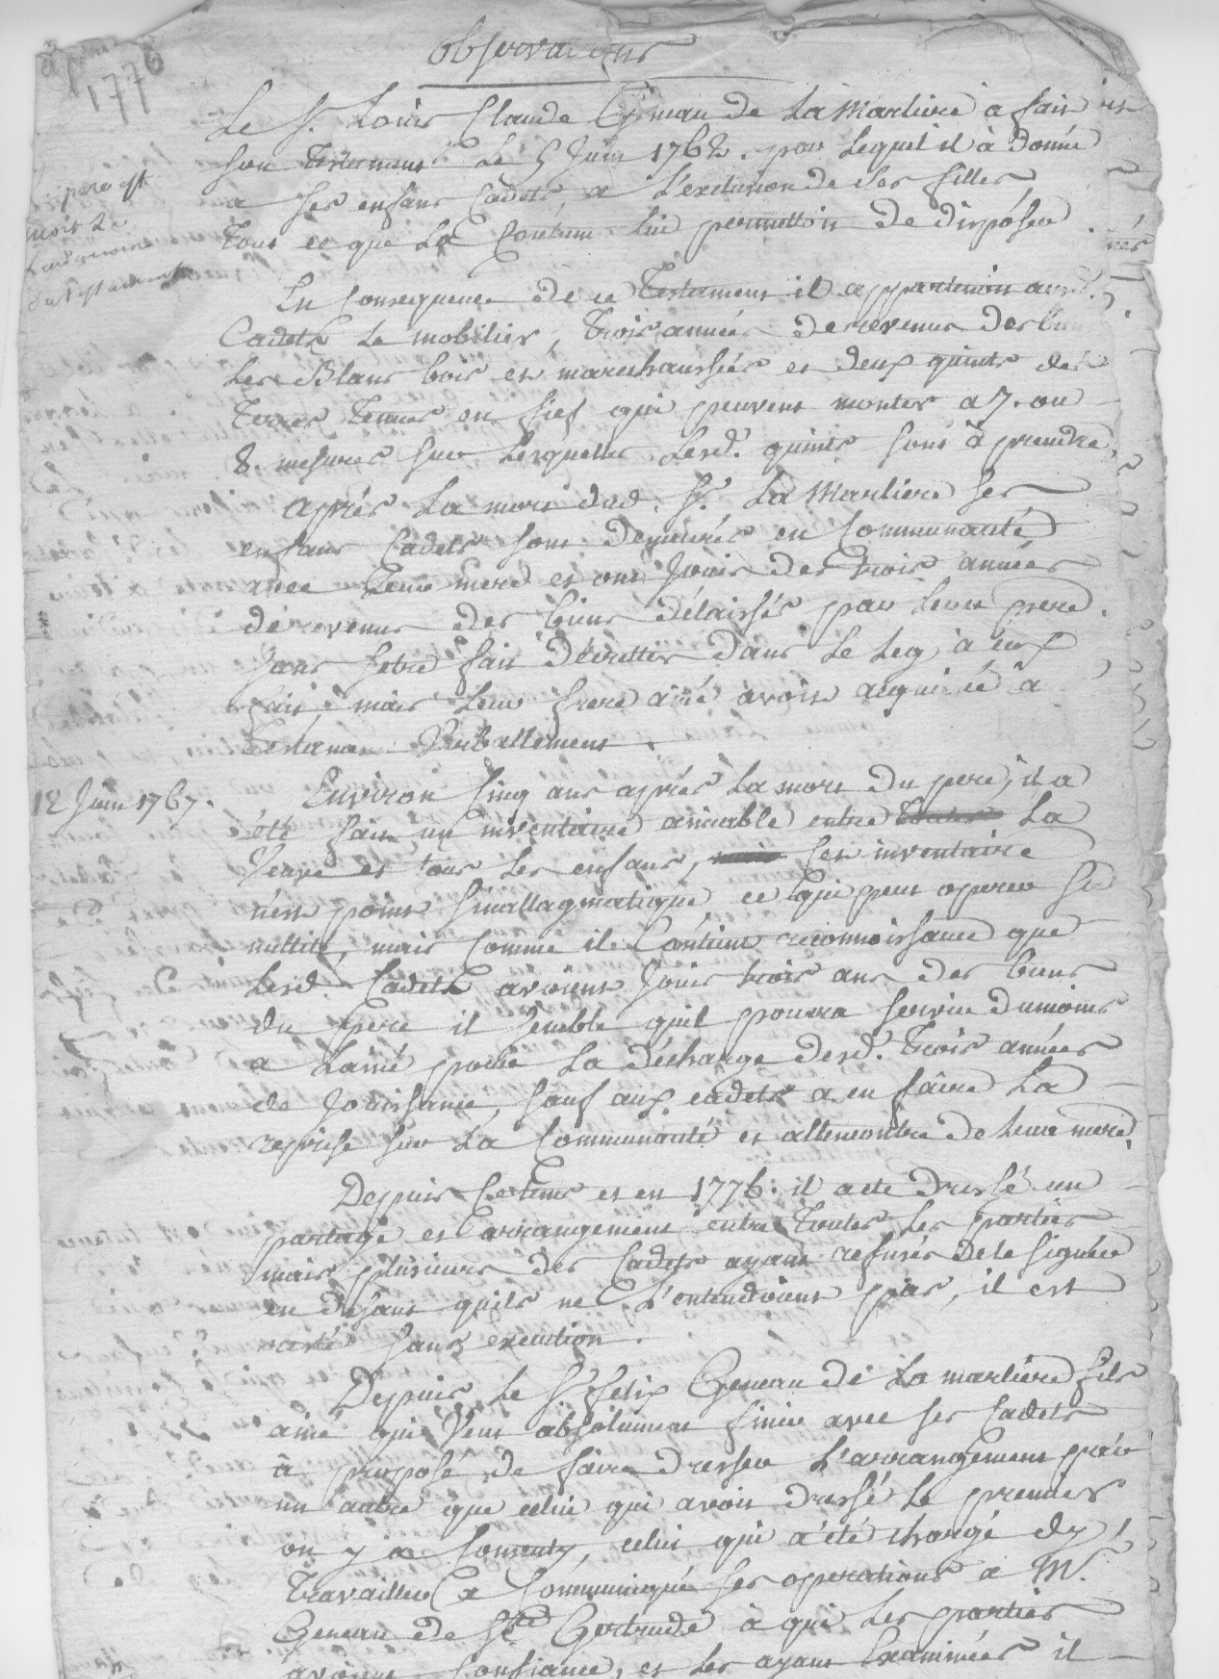 1776
observations
Le Sr. Louis Claude Geneau de La Marliere a fait
son Testament Le 5 Juin 1762. par Lequel il à donné
a ses enfans Cadets, a L'exclusion de ses filles
Tout ce que La Coutume lui permettoit de disposer.
En Consequence de ce Testament il appartenoit
Cadets Le mobilier, Trois années de revenus des
Les Blanc bois et mareshaussés et deux quints des
Terres Tenues en fief qui peuvent monter a 7. ou
8. mesures sur Lesquelles Lesd. quints sont à prendre.
après La mort dud. Sr. La Marliere ses
enfans Cadets sont demeurés en Communauté
avec Leur mere et ont Jouis des trois années
de revenus des biens délaissés par Leur pere.
sans s'etre fait décretter dans Le Leg à eux
fait, mais Leur frere ainé avoit acquiescé à
Testament Verballement.
12 Juin 1767.
Environ Cinq ans après La mort du pere, il a
été fait un inventaire amiable entre La
Veuve et tous Les enfans, Cet inventaire
n'est point Sinallagmatique ce qui peut operer sa
nullité, mais Comme il Contient reconnoissance que
Lesd. Cadets avoient Jouis trois ans des biens
du pere il semble quil pourra servir dumoins
a Lainé pour La décharge desd. Trois années
de Jouissance, sauf aux cadets a en faire La
reprise sur La Communauté et allencontre de Leur mere.
Depuis Ce tems et en 1776. il a ete Dressé un
partage et arrangement entre Toutes Les parties
mais plusieurs des Cadets ayant refusés de le signer
en disant quils ne L'entendoient pas, il est
resté sans execution.
Depuis Le Sr. felix Geneau de La marliere fils
ainé qui Veut absolument finir avec ses Cadets
à proposé de faire dresser L'arrangement par
un autre que celui qui avoit dressé Le premier
on y a Consenty, celui qui a été chargé dy
Travailler a Communiqué ses operations a Mr.
Geneau de Ste Gertrude à qui Les parties
avoient Confiance, et Les ayant Examinées il